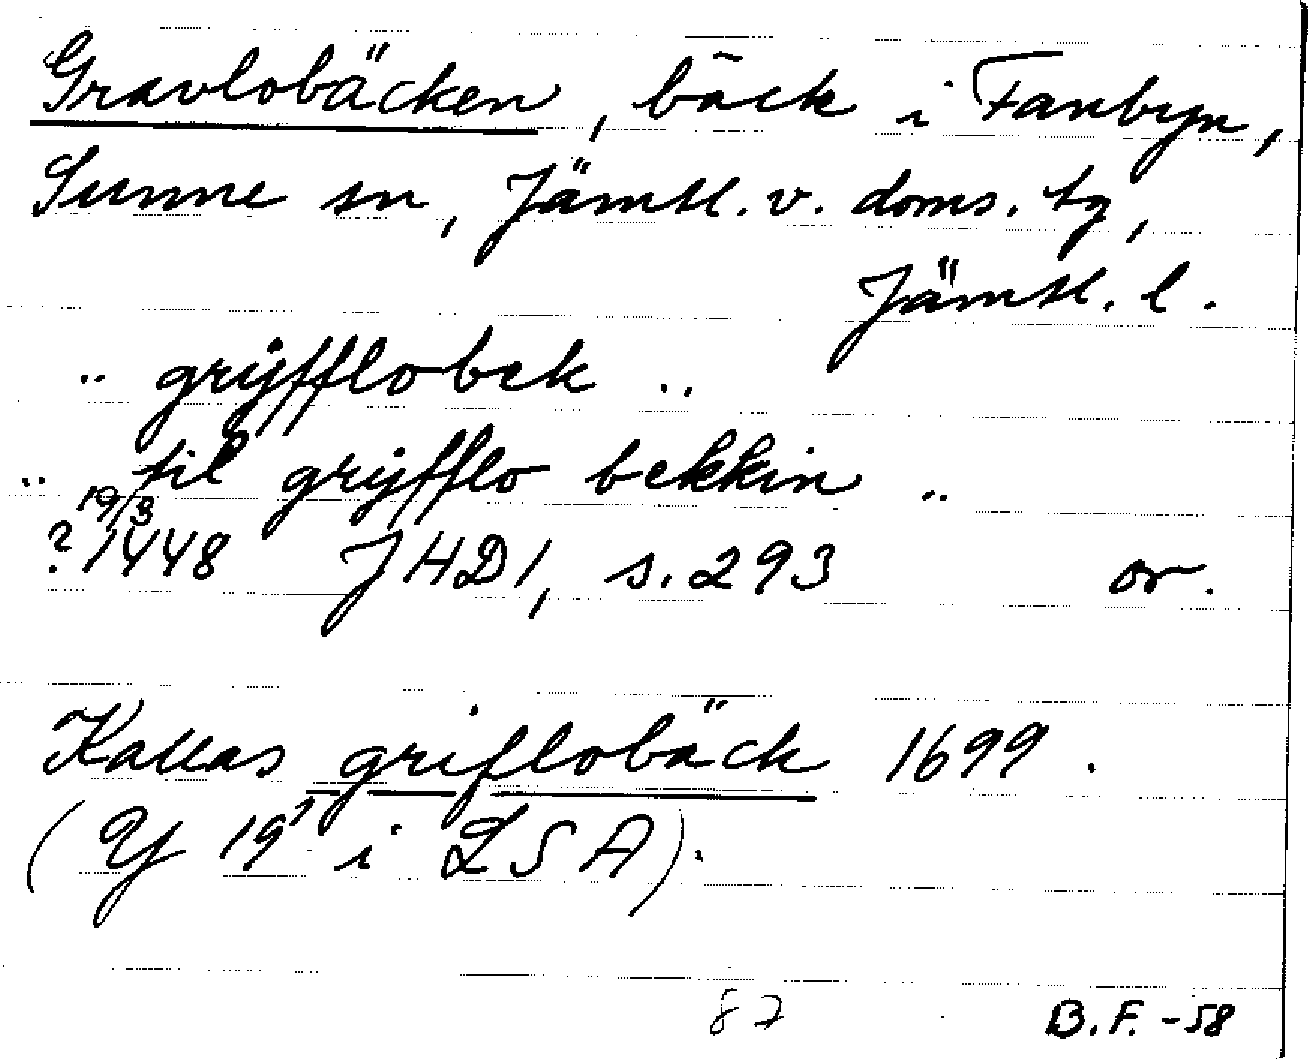 Gravlobäcken, bäck i Fanbyn,
Sunne sn, Jämtl. v. doms. tg,
Jämtl. l.
.. grÿfflobek ..
.. til grÿfflo bekkin ..
? 19/3 1448 JHD1, s. 293 or.
Kallas griflobäck 1699.
(Y 19¹ i LSA).
87 B.F. -58